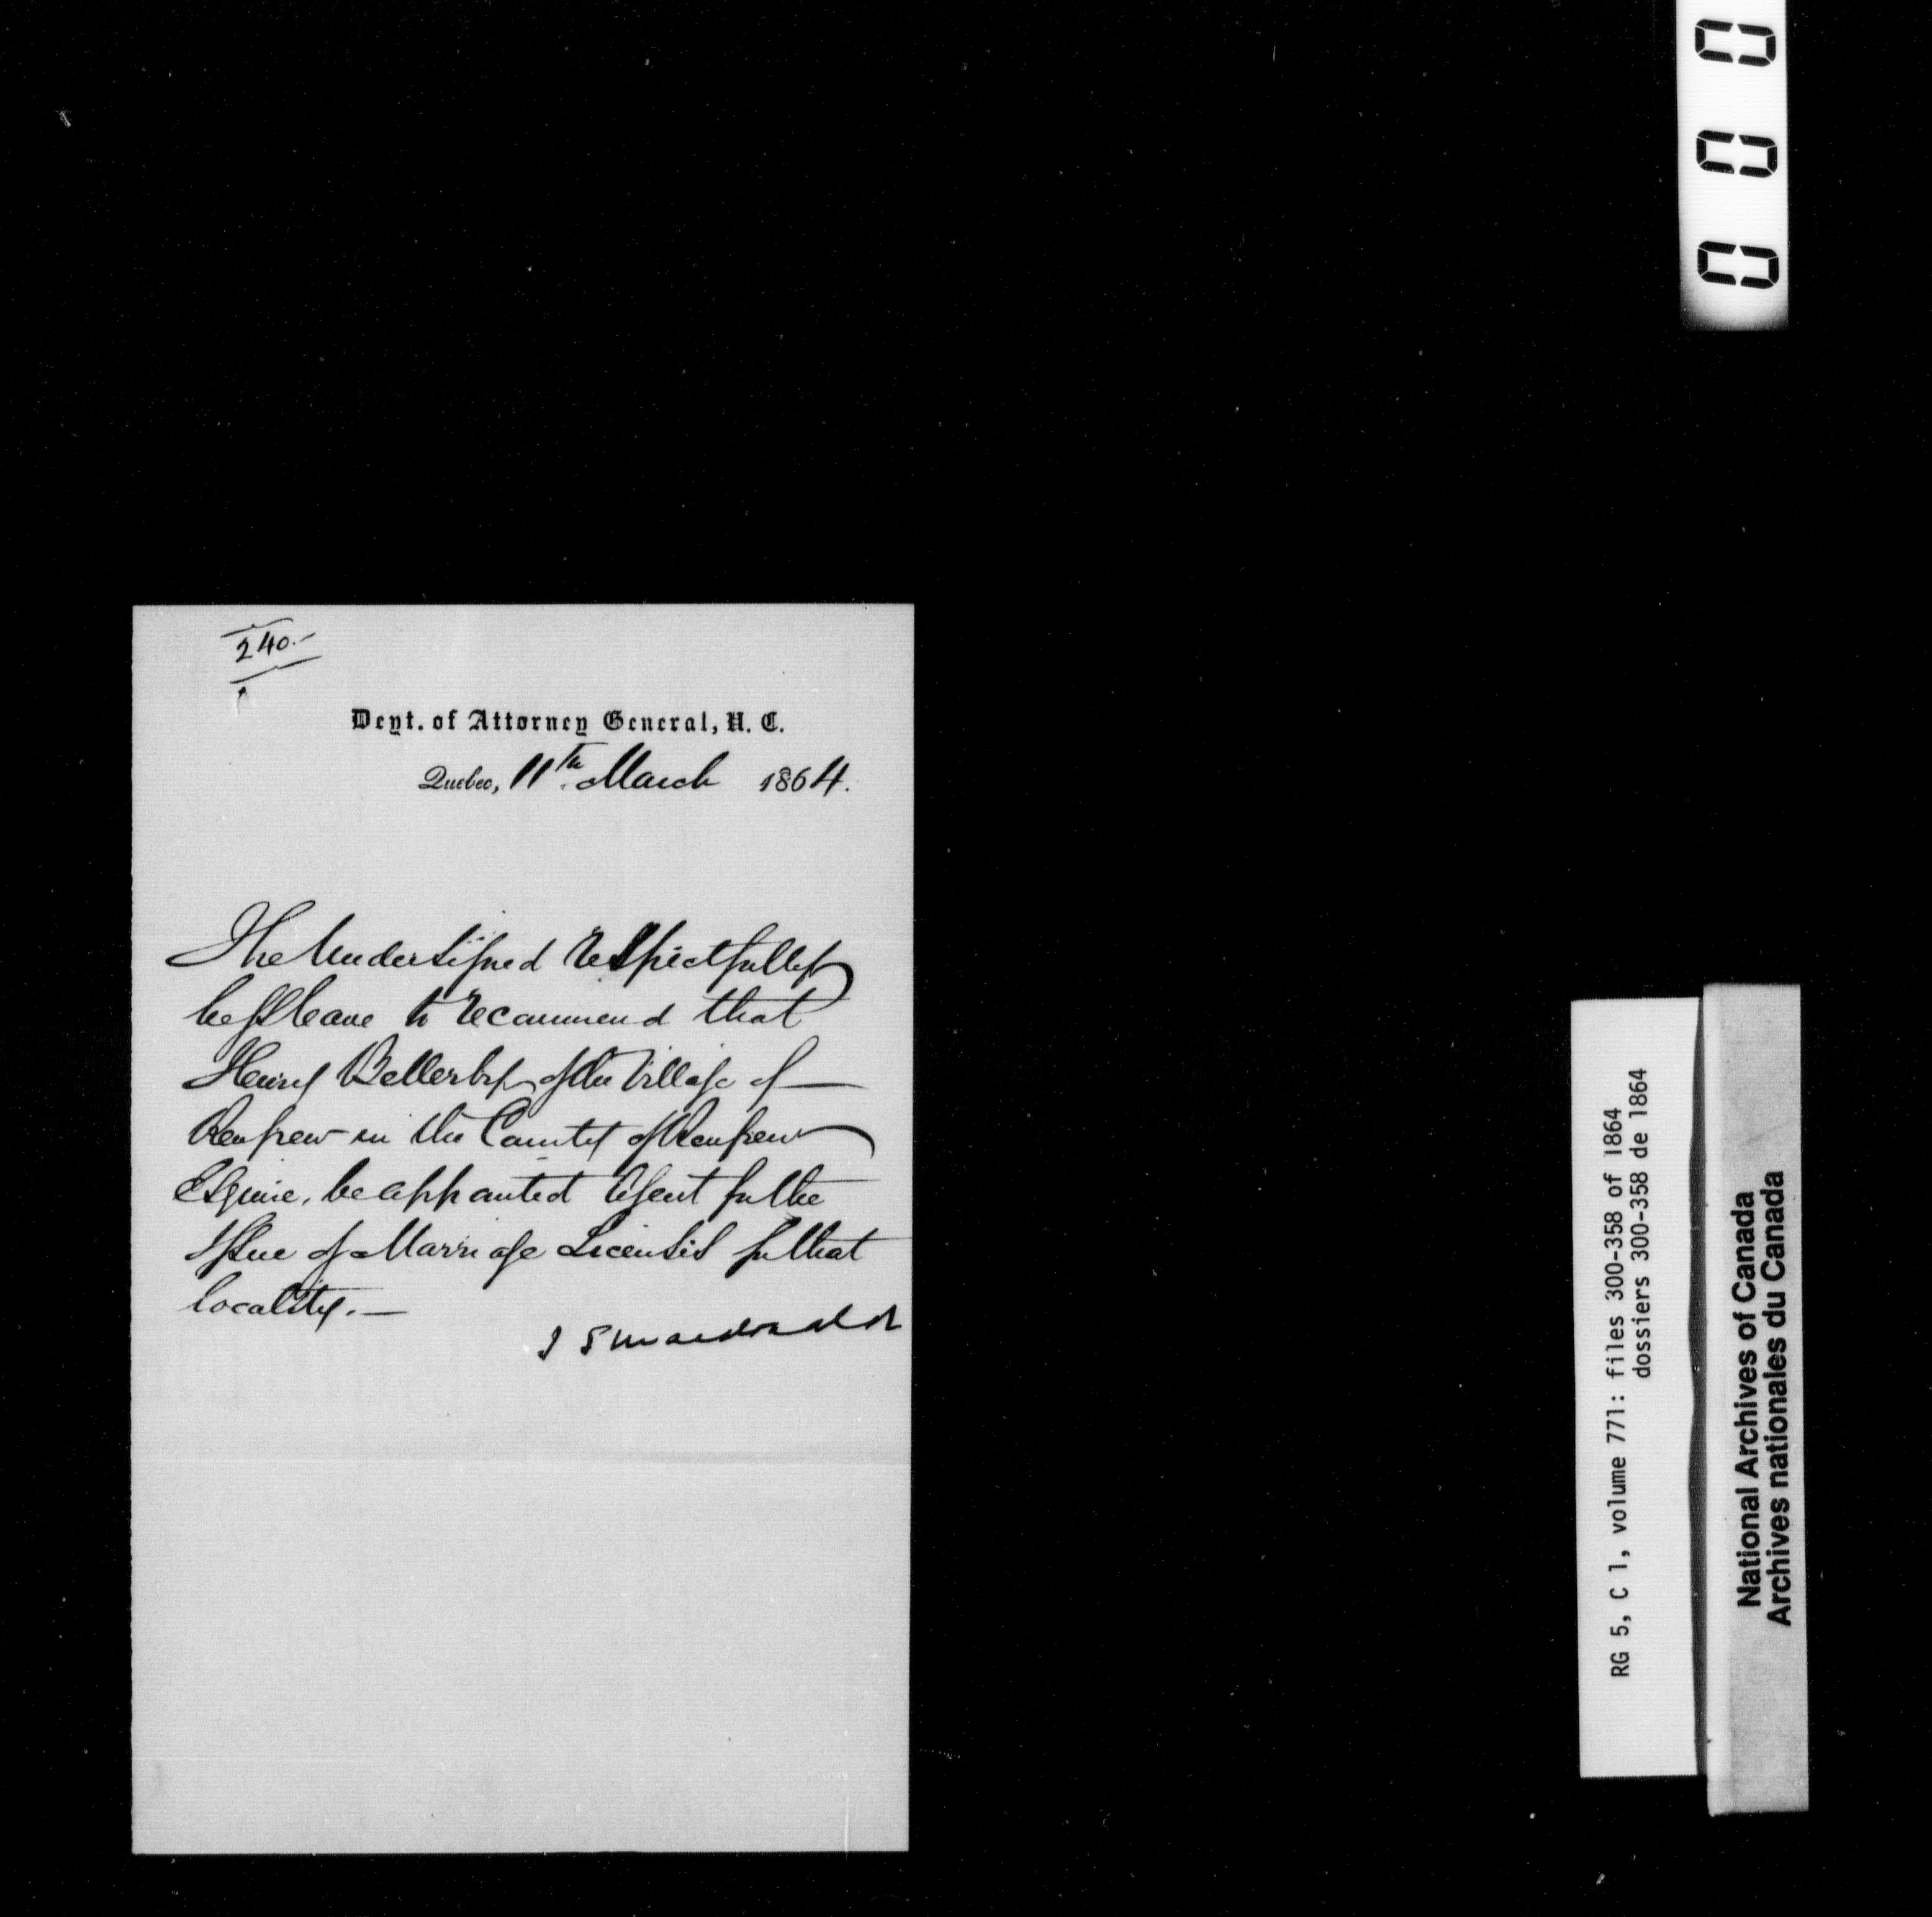 240.-
Dept. of Attorney General, U. C.
Quebec, 11th March 1864.
The Undersigned respectfully
begs leave to recommend that
Henry Bellerby of the Village of
Renfrew in the County of Renfrew
Esquire, be appointed Agent for the
Issue of Marriage Licenses for that
locality.—
J S Macdonald
0 0 0
RG 5, C 1, volume 771: files 300-358 of 1864
dossiers 300-358 de 1864
National Archives of Canada
Archives nationales du Canada